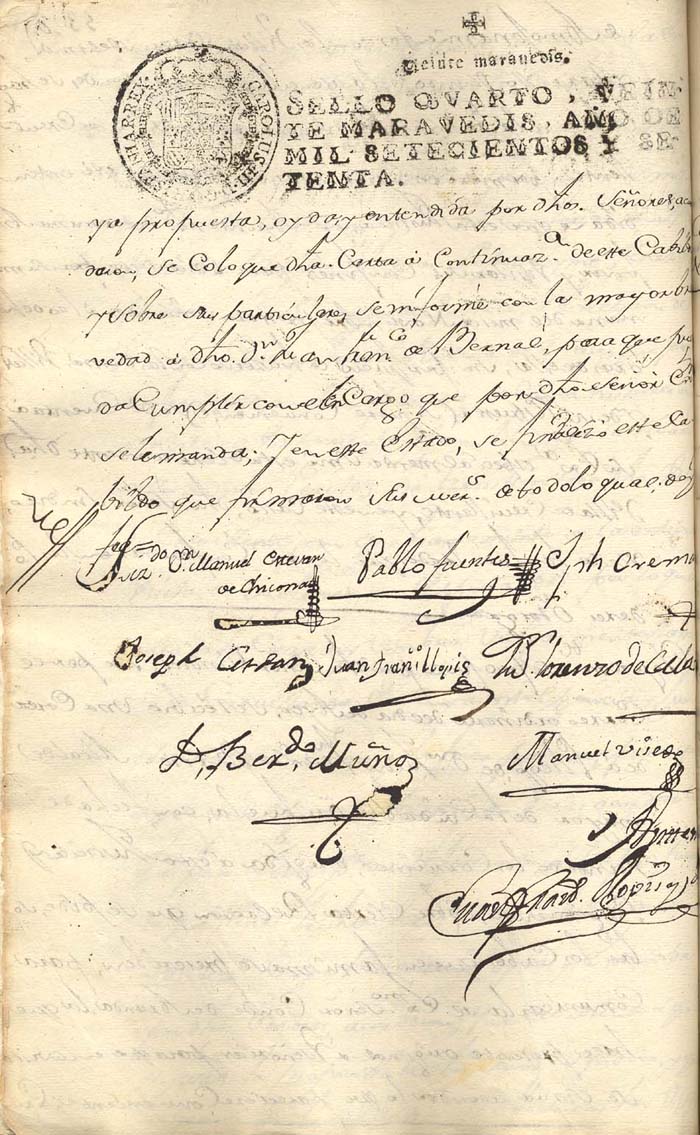 CAROLUS III
HISPANIAR REX
Veinte maravedis.
SELLO QVARTO, VEIN-
TE MARAVEDIS, AÑO DE
MIL SETECIENTOS Y SE-
TENTA.
ya propuesta, oyda, y entendida por dhos. Señores, a
daron, se coloque dha. Carta à continuaz.ⁿ de este Cabil
y sobre sus particulares, se informe con la mayor bre
vedad à dho. D.ⁿ Juan Fran.co de Bernal, para que pue
da Cumplir con el en Cargo que por dho. Señor
se le manda; Y en este Estado, se finalizó este Ca
bildo que firmaron sus mer.s de todo lo qual, doy
D.ⁿ Manuel Estevan
de Chicona
Pablo fuentes
Jph Crem
Joseph
Juan fran.co llopis
Lorenzo de
D, Ber.do Muñoz
Manuel Visedo